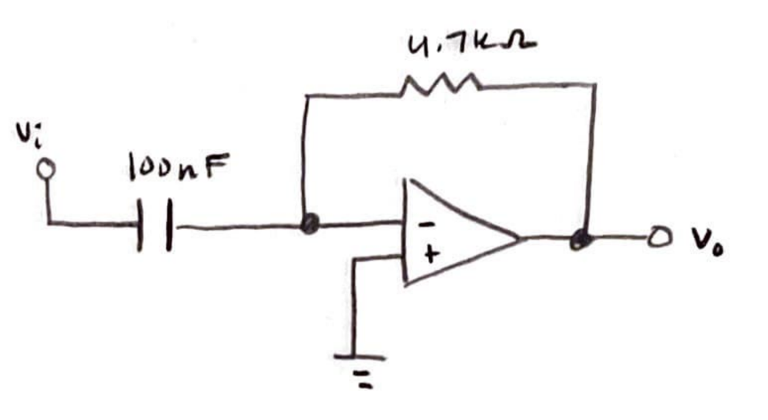 4.7kΩ
Vi
100nF
-
+
Vo